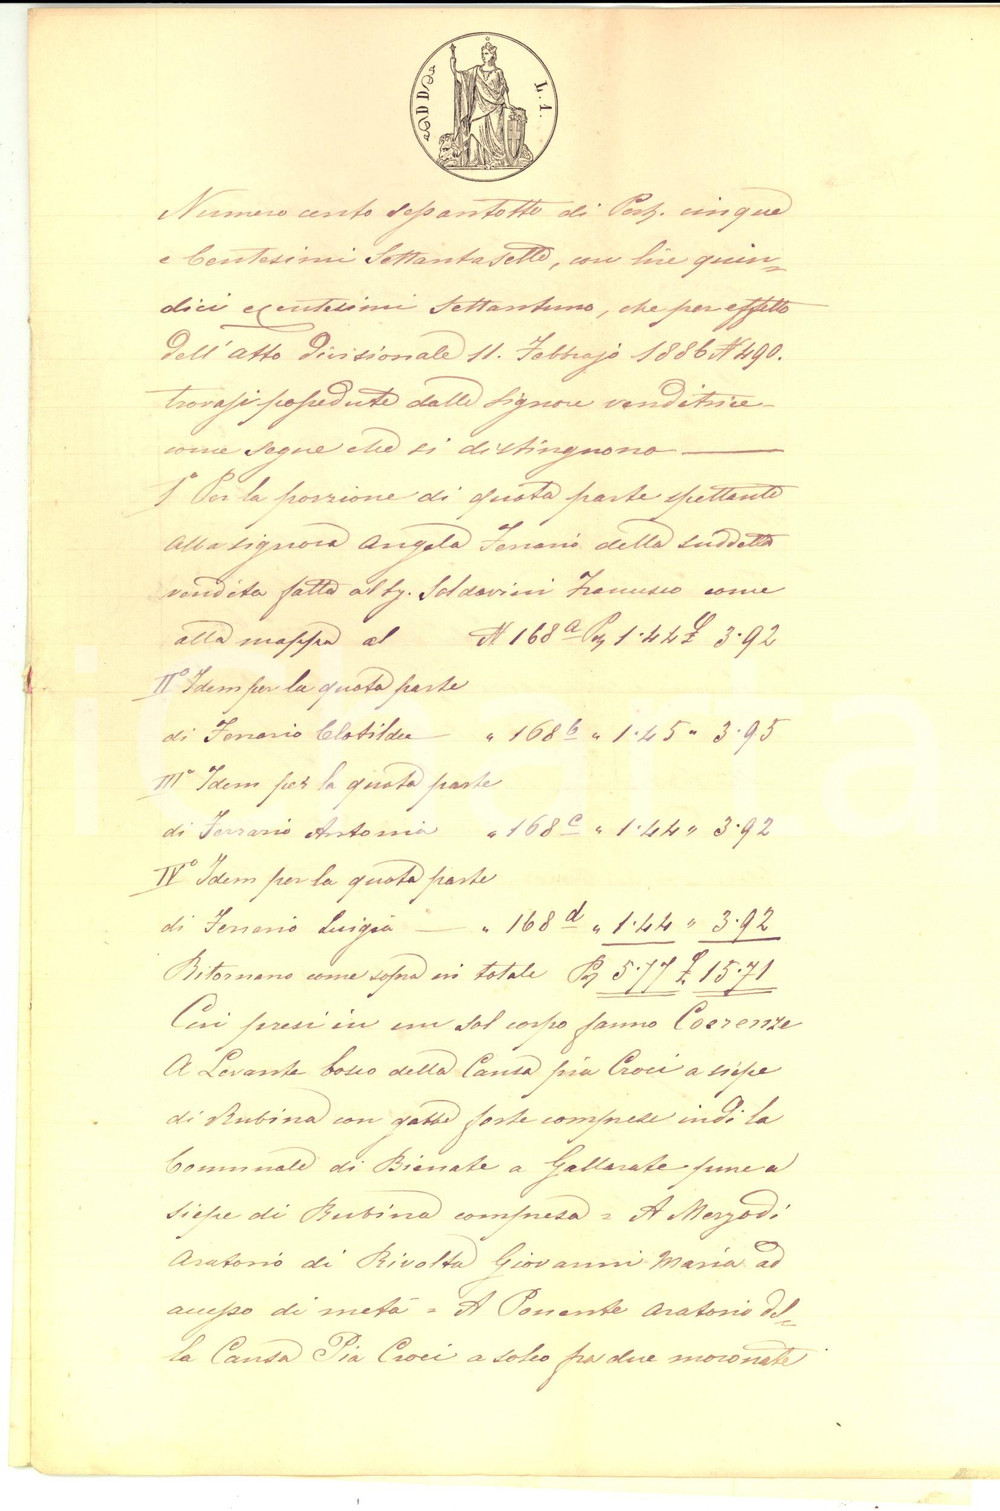 L. 1.
Numero cento sessantotto di Pert. cinque
e Centesimi Settantasette, con lire quin=
dici e centesimi Settantuno, che per effetto
dell'atto divisionale 11. Febbrajo 1886 N 490.
trovasi possedute dalle Signore venditrice
come segue che si distinguono
1° Per la porzione di quota parte spettante
alla signora Angela Ferrario della suddetta
vendita fatta al Sg. Soldavini Francesco come
alla mappa al N 168 a Pz 1.44 £ 3.92
II° Idem per la quota parte
di Ferrario Clotilde " 168 b " 1.45 " 3.95
III° Idem per la quota parte
di Ferrario Antonia " 168 c " 1.44 " 3.92
IV° Idem per la quota parte
di Ferrario Luigia " 168 d " 1.44 " 3.92
Ritornano come sopra in totale Pz 5.77 £ 15.71
Cui presi in un sol corpo fanno Coerenze
A Levante bosco della Causa pia Croci a siepe
di Rubina con gabbe forte comprese indi la
Comunale di Bienate a Gallarate pure a
siepe di Rubina compresa = A Merzodi
Aratorio di Rivolta Giovanni Maria ad
accesso di metà = A Ponente Aratorio del=
la Causa Pia Croci a solco fra due moronate